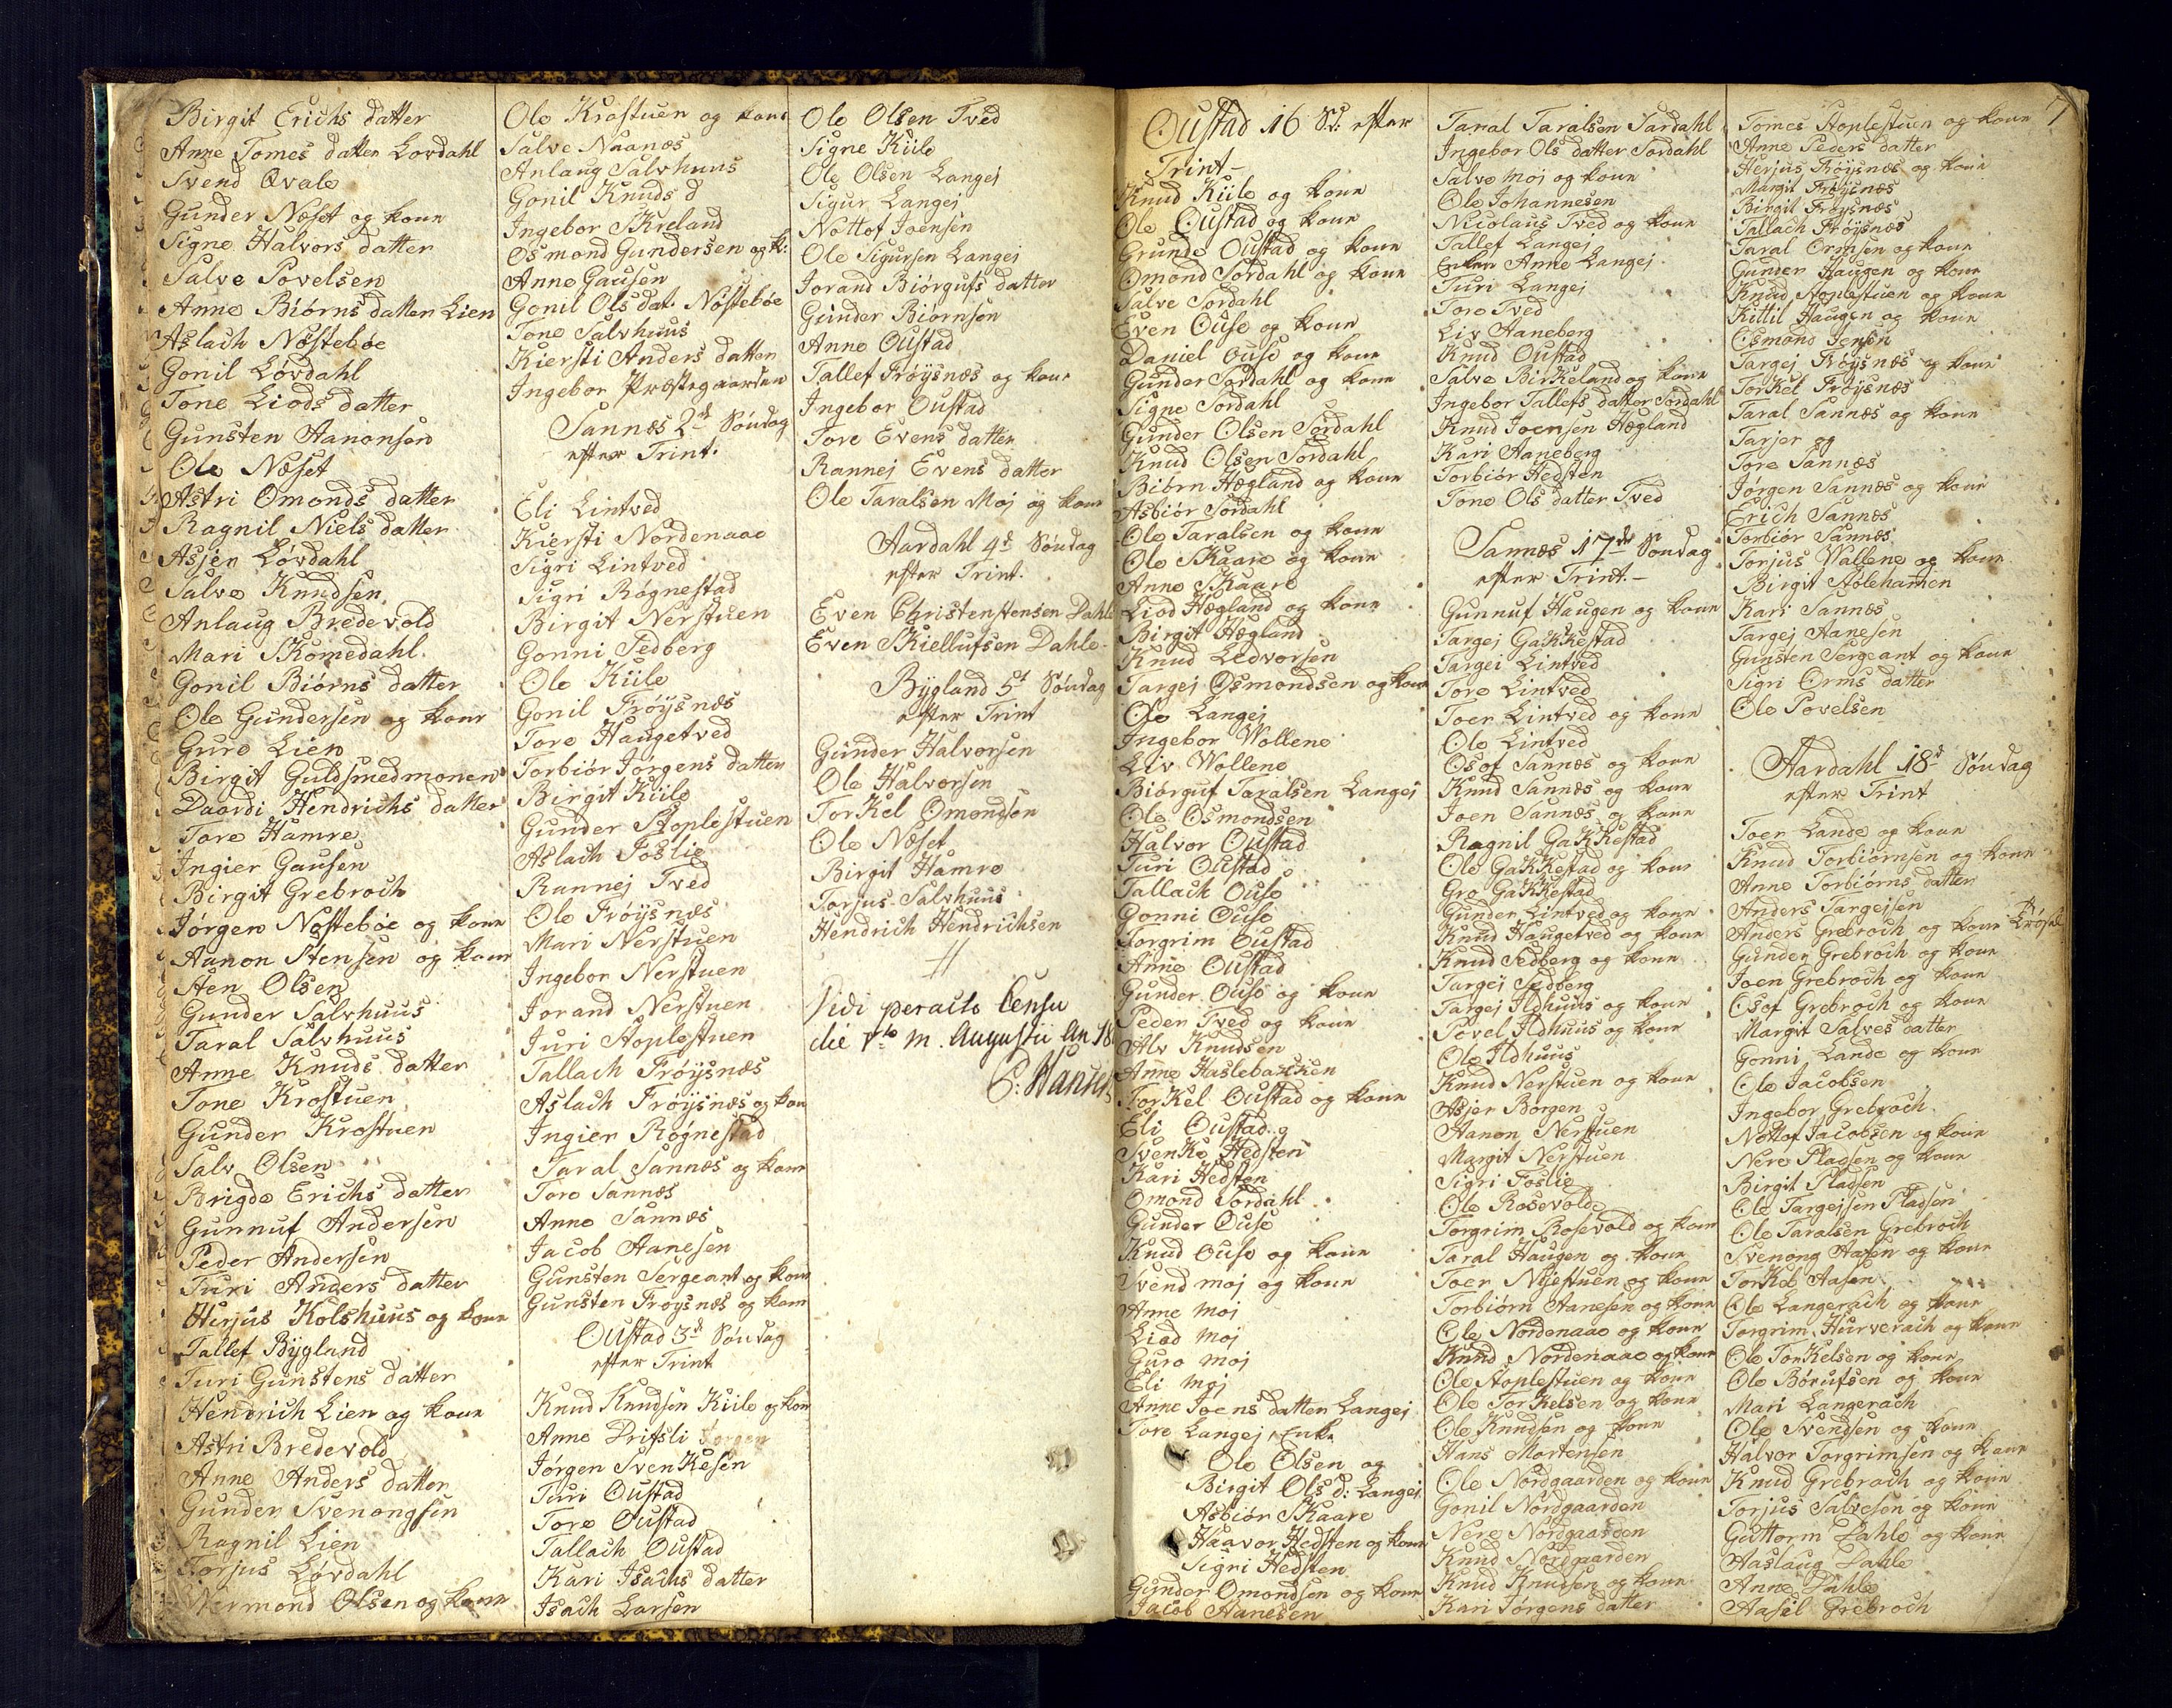 Birgit Erichs datter
Anne Tomes datter Lovdahl
Svend Qvale
Gunder Næset og kone
Signe Halvors datter
Salve Povelsen
Anne Biörns datter Lien
Aslach Nöstebøe
Gonil Lövdahl
Tone Liods datter
Gunsten Aanonsen
Ole Næset
Astri Omonds datter
Ragnil Niels datter
Asjer Lövdahl
Salve Knudsen
Anlaug Bredevold
Mari Skomedahl
Gonil Biörns datter
Ole Gundersen og kone
Guro Lien
Birgit Guldsmedmonen
Daardi Hendrichs datter
Tore Hamre
Ingier Gausen
Birgit Grebroch
Jörgen Nöstebøe og kone
Aanon Stensen og kone
Sten Olsen
Gunder Salvhuus
Taral Salvhuus
Anne Knuds datter
Tone Krostuen
Gunder Krostuen
Salv Olsen
Brigde Erichs datter
Gunnuf Andersen
Peder Andersen
Turi Anders datter
Herjus Kolshuus og kone
Tallef Bygland
Turi Gunstens datter
Hendrich Lien og kone
Astri Bredevold
Anne Anders datter
Gunder Svenongsen
Ragnil Lien
Torjus Lövdahl
Vermond Olsen og kone
Ole Krostuen og kone
Salve Naanes
Anlaug Salvhuus
Gonil Knuds d
Ingebor Skreland
Osmond Gundersen og k:
Anne Gausen
Gonil Ols dat. Nöstebøe
Tone Salvhuus
Kiersti Anders datter
Ingebor Præstegaarden
Sannes 2d Söndag
efter Trint.
Eli Lintved
Kiersti Nordenaae
Sigri Lintved
Sigri Rögnestad
Birgit Nerstuen
Gonni Sedberg
Ole Kiile
Gonil Fröysnæs
Tore Haugetved
Torbiör Jörgens datter
Birgit Kiile
Gunder Stoplestuen
Aslach Foslie
Rannej Tved
Ole Fröysnæs
Mari Nerstuen
Ingebor Nerstuen
Jorand Nerstuen
Juri Stoplestuen
Tallach Fröysnæs
Aslach Fröysnæs og kon
Ingier Rögnestad
Taral Sannæs og kone
Tore Sannæs
Anne Sannæs
Jacob Aanesen
Gunsten Sergeant og kone
Gunsten Fröysnæs og kone
Oustad 3d Söndag
efter Trint
Knud Knudsen Kiile og kon
Anne Drifsli
Jörgen Svenkesen
Turi Oustad
Tore Oustad
Tallach Oustad
Kari Isachs datter
Isach Larsen
Ole Olsen Tved
Signe Kiile
Ole Olsen Langej
Sigur Langej
Nottof Joensen
Ole Sigursen Langej
Jorand Biörgufs datter
Gunder Biörnsen
Anne Oustad
Tallef Fröysnæs og kone
Ingebor Oustad
Tore Evens datter
Rannej Evens datter
Ole Taralsen Moj og kone
Aardahl 4d Söndag
efter Trint.
Even Christenstensen Dahle
Even Skiellufsen Dahle
Bygland 5t Söndag
efter Trint
Gunder Halvorsen
Ole Halvorsen
Torkel Omondsen
Ole Næset
Birgit Hamre
Torjus Salvhuus
Hendrich Hendrichsen
Vidi peracto Censu
die m. Augustii An 18
P: Hansen
7
Oustad 16 S: efter
Trint-
Knud Kiile og kone
Ole Oustad og kone
Grunde Oustad og kone
Omond Sordahl og kone
Salve Sordahl
Even Ouse og kone
Daniel Ouse og kone
Gunder Sordahl og kone
Signe Sordahl
Gunder Olsen Sordahl
Knud Olsen Sordahl
Biörn Hægland og kone
Asbiör Sordahl
Ole Taralsen og kone
Ole Skaare og kone
Anne Skaare
Liod Hægland og kone
Birgit Hægland
Knud Ledvorsen
Targej Osmondsen og kone
Ole Langej
Ingebor Wollene
Liv Wollene
Biörguf Taralsen Langej
Ole Osmondsen
Halvor Oustad
Turi Oustad
Tallach Ouse
Gonni Ouse
Torgrim Oustad
Anne Oustad
Gunder Ouse og kone
Peder Tved og kone
Alv Knudsen
Anne Haslebakken
Torkel Oustad og kone
Eli Oustad
Svenke Hedsten
Kari Hedsten
Omond Sordahl
Gunder Ouse
Knud Ouse og kone
Svend moj og kone
Anne Moj
Liod Moj
Guro moj
Eli Moj
Anne Joens datter Langej
Tore Langej, Enke
Ole Olsen og
Birgit Ols d: Langej
Asbiör Skaare
Haavor Hedsten og kone
Sigri Hedsten
Gunder Omondsen og kone
Jacob Aanesen
Taral Taralsen Sordahl
Ingebor Ols datter Sordahl
Salve Moj og kone
Ole Johannesen
Nicolaus Tved og kone
Tallef Langej
Enken Anne Langej
Turi Langej
Tore Tved
Liv Haneberg
Knud Oustad
Salve Birkeland og kone
Ingebor Tallefs datter Sordahl
Knud Joensen Hægland
Kari Haneberg
Torbiör Hedsten
Tone Ols datter Tved
Sannæs 17de Söndag
efter Trint.-
Gunnuf Haugen og kone
Targej Gakkestad
Targej Lintved
Tore Lintved
Joen Lintved og kone
Ole Lintved
Osof Sannæs og kone
Knud Sannæs og kone
Joen Sannæs og kone
Ragnil Gakkestad
Ole Gakkestad og kone
Gro Gakkestad
Gunder Lintved og kone
Knud Haugetved og kone
Knud Sedberg og kone
Targej Sedberg
Targej Ildhuus og kone
Povel Ildhuus og kone
Ole Ildhuus
Knud Nerstuen og kone
Asjer Borgen
Aanon Nerstuen
Margit Nerstuen
Sigri Foslie
Ole Rosevold
Torgrim Rosevold og kone
Taral Haugen og kone
Joen Nyestuen og kone
Torbiörn Aanesen og kone
Ole Nordenaae og kone
Knud Nordenaae og kone
Ole Stoplestuen og kone
Ole Torkelsen og kone
Ole Knudsen og kone
Hans Mortensen
Ole Nordgaarden og kone
Gonil Nordgaarden
Nere Nordgaarden
Knud Nordgaarden
Knud Knudsen og kone
Kari Jörgens datter
Tomes Stoplestuen og kone
Anne Peders datter
Herjus Fröysnæs og kone
Margit Fröysnæs
Birgit Fröysnæs
Tallach Fröysnæs
Taral Ormsen og kone
Gunder Haugen og kone
Knud Stoplestuen og kone
Kittil Haugen og kone
Osmond Jensen
Targej Fröysnæs og kone
Torkel Fröysnæs
Taral Sannæs og kone
Tarjer og
Tore Sannæs
Jörgen Sannæs og kone
Erich Sannæs
Torbiör Sannæs
Torjus Wallene og kone
Birgit Stolehamen
Kari Sannæs
Targej Aanesen
Gunsten Sergeant og kone
Sigri Orms datter
Ole Povelsen
Aardahl 18d Söndag
efter Trint
Joen Lande og kone
Knud Torbiörnsen og kone
Anne Torbiörns datter
Anders Targejsen
Anders Grebroch og kone
Gunder Grebroch og kone
Joen Grebroch og kone
Osof Grebroch og kone
Margit Salves datter
Gonni Lande og kone
Ole Jacobsen
Ingebor Grebroch
Nottof Jacobsen og kone
Nere Pladsen og kone
Birgit Pladsen
Ole Targejsen Pladsen
Ole Taralsen Grebroch
Svenong Aasen og kone
Torkel Aasen
Ole Langerach og kone
Torgrim Hurverach og kone
Ole Torkelsen og kone
Ole Börufsen og kone
Mari Langerach
Ole Svendsen og kone
Halvor Torgrimsen og kone
Knud Grebroch og kone
Torjus Salvesen og kone
Guttorm Dahle og kone
Haslaug Dahle
Anne Dahle
Aasil Grebroch